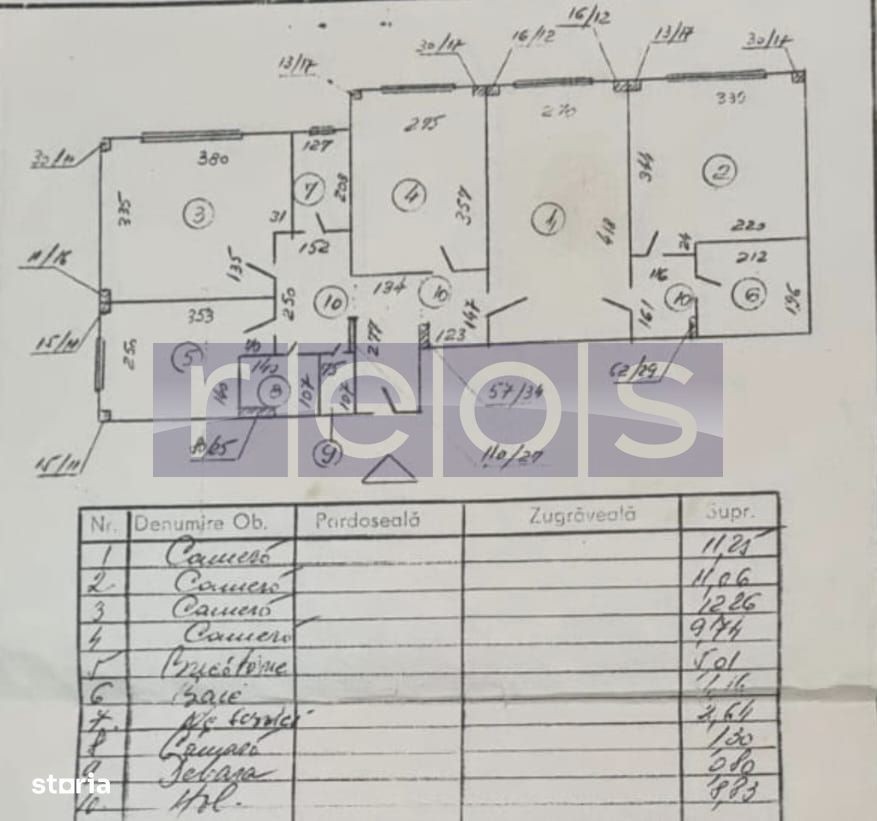 16/12
30/17 16/12 13/17 30/17
13/17
127 295 270 330
380
335 3 7 208 4 357 1 418 344 2
31 152 220
24 212
11/16 135 250 10 134 10 147 161 116 10 6 196
353 277 123
15/11 250 5 70 140 75 62/29
140 8 107 107 57/34
reos
15/11 9 110/27
Nr. Denumire Ob. Pardoseală Zugrăveală Supr.
1 Cameră 11,25
2 Cameră 11,06
3 Cameră 12,26
4 Cameră 9,74
5 5,01
6 Baie
7. 2,64
8 Cămară 1,30
9 Debara 0,80
10 Hol. 8,83
storia